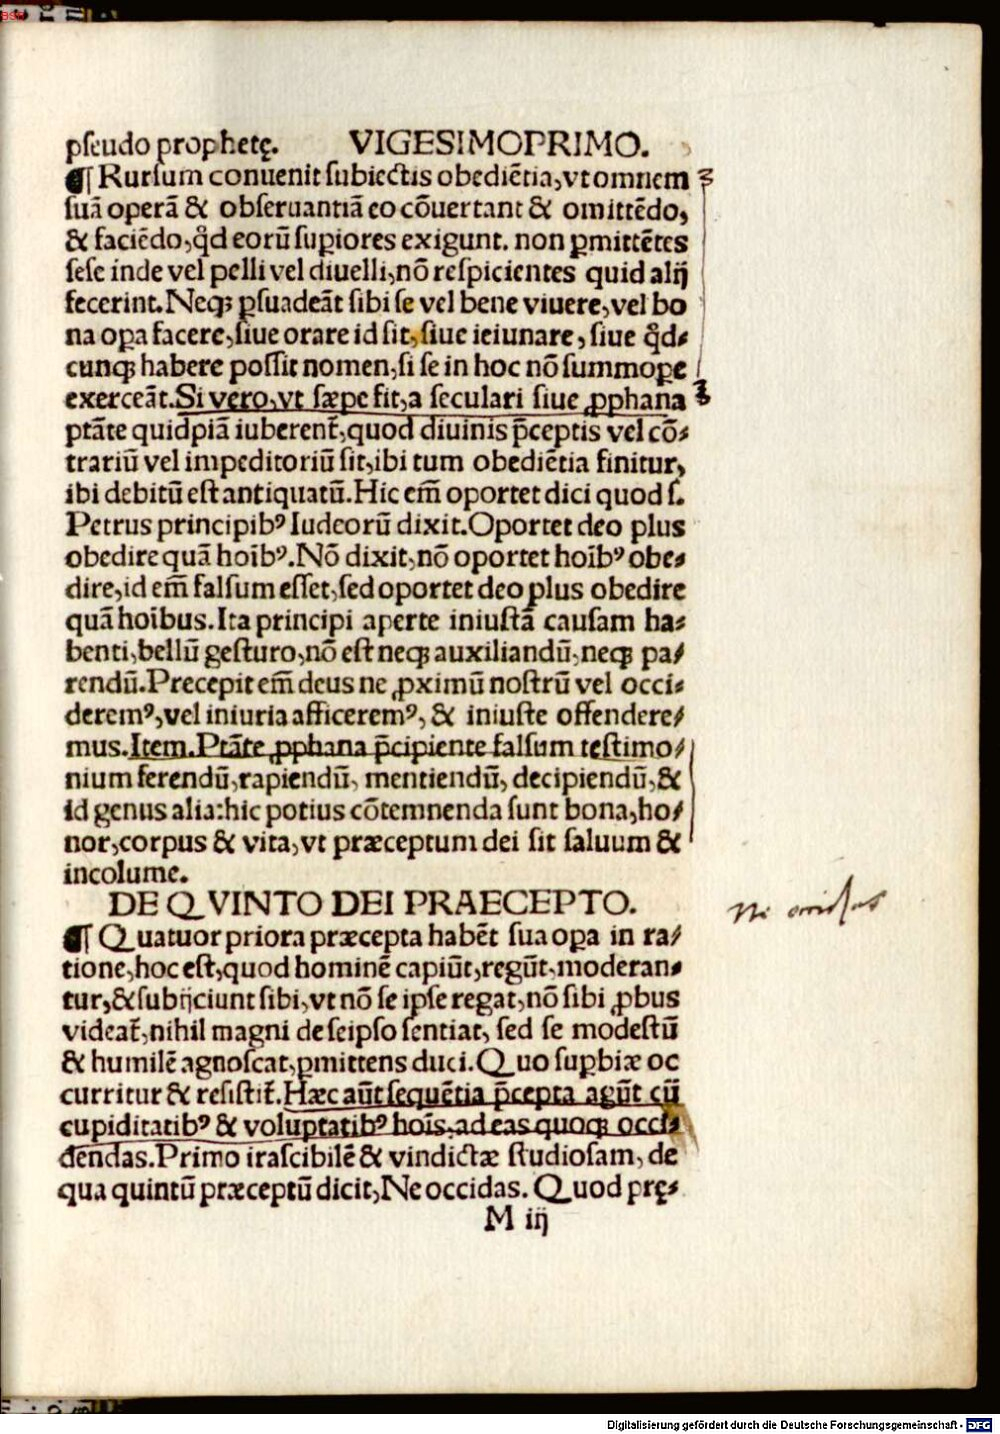 pſeudo prophetę. VIGESIMOPRIMO.
¶ Rurſum conuenit ſubiectis obediẽtia, vt omnem
ſuã operã & obſeruantiã eo cõuertant & omittẽdo,
& faciẽdo, qd̃ eorũ ſuꝑiores exigunt. non ꝑmittẽtes
ſeſe inde vel pelli vel diuelli, nõ reſpicientes quid alij
fecerint. Neqꝫ ꝑſuadeãt ſibi ſe vel bene viuere, vel bo
na oꝑa facere, ſiue orare id ſit, ſiue ieiunare, ſiue qd̃⸗
cunqꝫ habere poſſit nomen, ſi ſe in hoc nõ ſummoꝑe
exerceãt. Si vero, vt ſæpe fit, a ſeculari ſiue ꝓphana
ptãte quidpiã iuberent̃, quod diuinis p̃ceptis vel cõ⸗
trariũ vel impeditoriũ ſit, ibi tum obediẽtia finitur,
ibi debitũ eſt antiquatũ. Hic em̃ oportet dici quod ſ.
Petrus principibꝰ Iudeorũ dixit. Oportet deo plus
obedire quã hoĩbꝰ. Nõ dixit, nõ oportet hoĩbꝰ obe⸗
dire, id em̃ falſum eſſet, ſed oportet deo plus obedire
quã hoĩbus. Ita principi aperte iniuſtã cauſam ha⸗
benti, bellũ geſturo, nõ eſt neqꝫ auxiliandũ, neqꝫ pa⸗
rendũ. Precepit em̃ deus ne ꝓximũ noſtrũ vel occi⸗
deremꝰ, vel iniuria afficeremꝰ, & iniuſte offendere⸗
mus. Item. Ptãte ꝓphana p̃cipiente falſum teſtimo⸗
nium ferendũ, rapiendũ, mentiendũ, decipiendũ, &
id genus alia: hic potius cõtemnenda ſunt bona, ho⸗
nor, corpus & vita, vt præceptum dei ſit ſaluum &
incolume.
DE QVINTO DEI PRAECEPTO.
Ne occidas
¶ Quatuor priora præcepta habẽt ſua oꝑa in ra⸗
tione, hoc eſt, quod hominẽ capiũt, regũt, moderan⸗
tur, & ſubijciunt ſibi, vt nõ ſe ipſe regat, nõ ſibi ꝓbus
videat̃, nihil magni de ſeipſo ſentiat, ſed ſe modeſtũ
& humilẽ agnoſcat, ꝑmittens duci. Quo ſuꝑbiæ oc
curritur & reſiſtit̃. Hæc aũt ſequẽtia p̃cepta agũt cũ
cupiditatibꝰ & voluptatibꝰ hoĩs, ad eas quoqꝫ occi⸗
dendas. Primo iraſcibilẽ & vindictæ ſtudioſam, de
qua quintũ præceptũ dicit, Ne occidas. Quod prę⸗
M iij
Digitalisierung gefördert durch die Deutsche Forschungsgemeinschaft - DFG